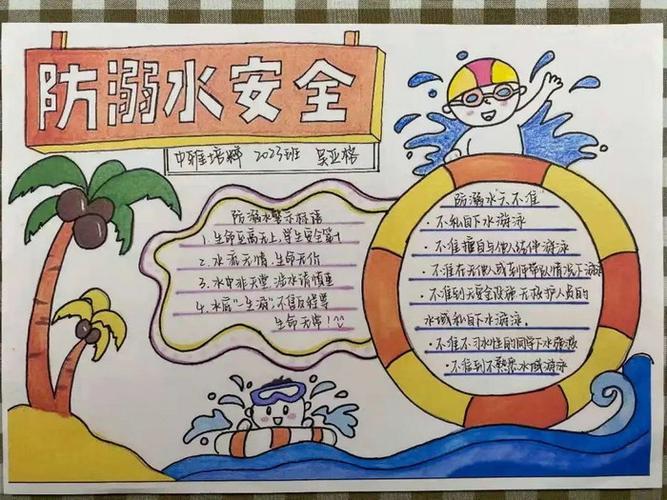 防溺水安全
中雅培粹 2023班 吴亚格
防溺水警示标语
1. 生命至高无上,学生安全第一
2. 水流无情,生命无价
3. 水中非天堂,涉水请慎重
4. 水居“一生消”,不负
生命无归!
防溺水“六不准”
· 不私自下水游泳
· 不准擅自与他人结伴游泳
· 不准在无他人或老师带队情况下游泳
· 不准到无安全设施、无救护人员的
水域私自下水游泳。
· 不准不习水性的同学下水施救
· 不准到不熟悉水域游泳